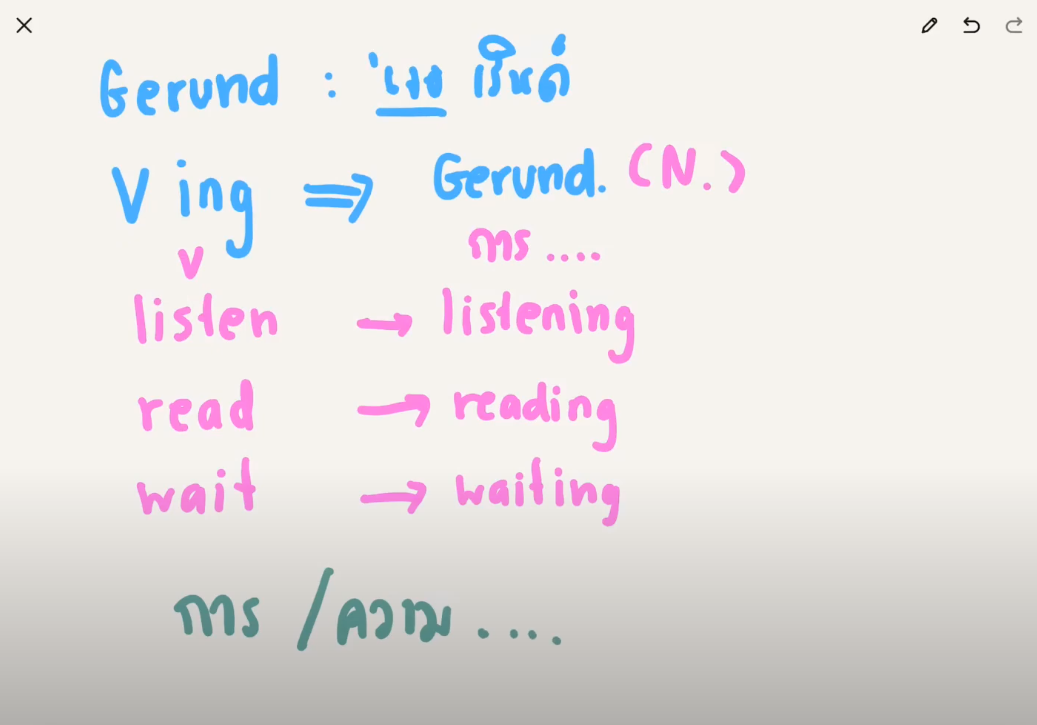 Gerund : 'เจอ เริ่นด์
V ing ⇒ Gerund. (N.)
v การ ....
listen → listening
read → reading
wait → waiting
การ / ความ ....